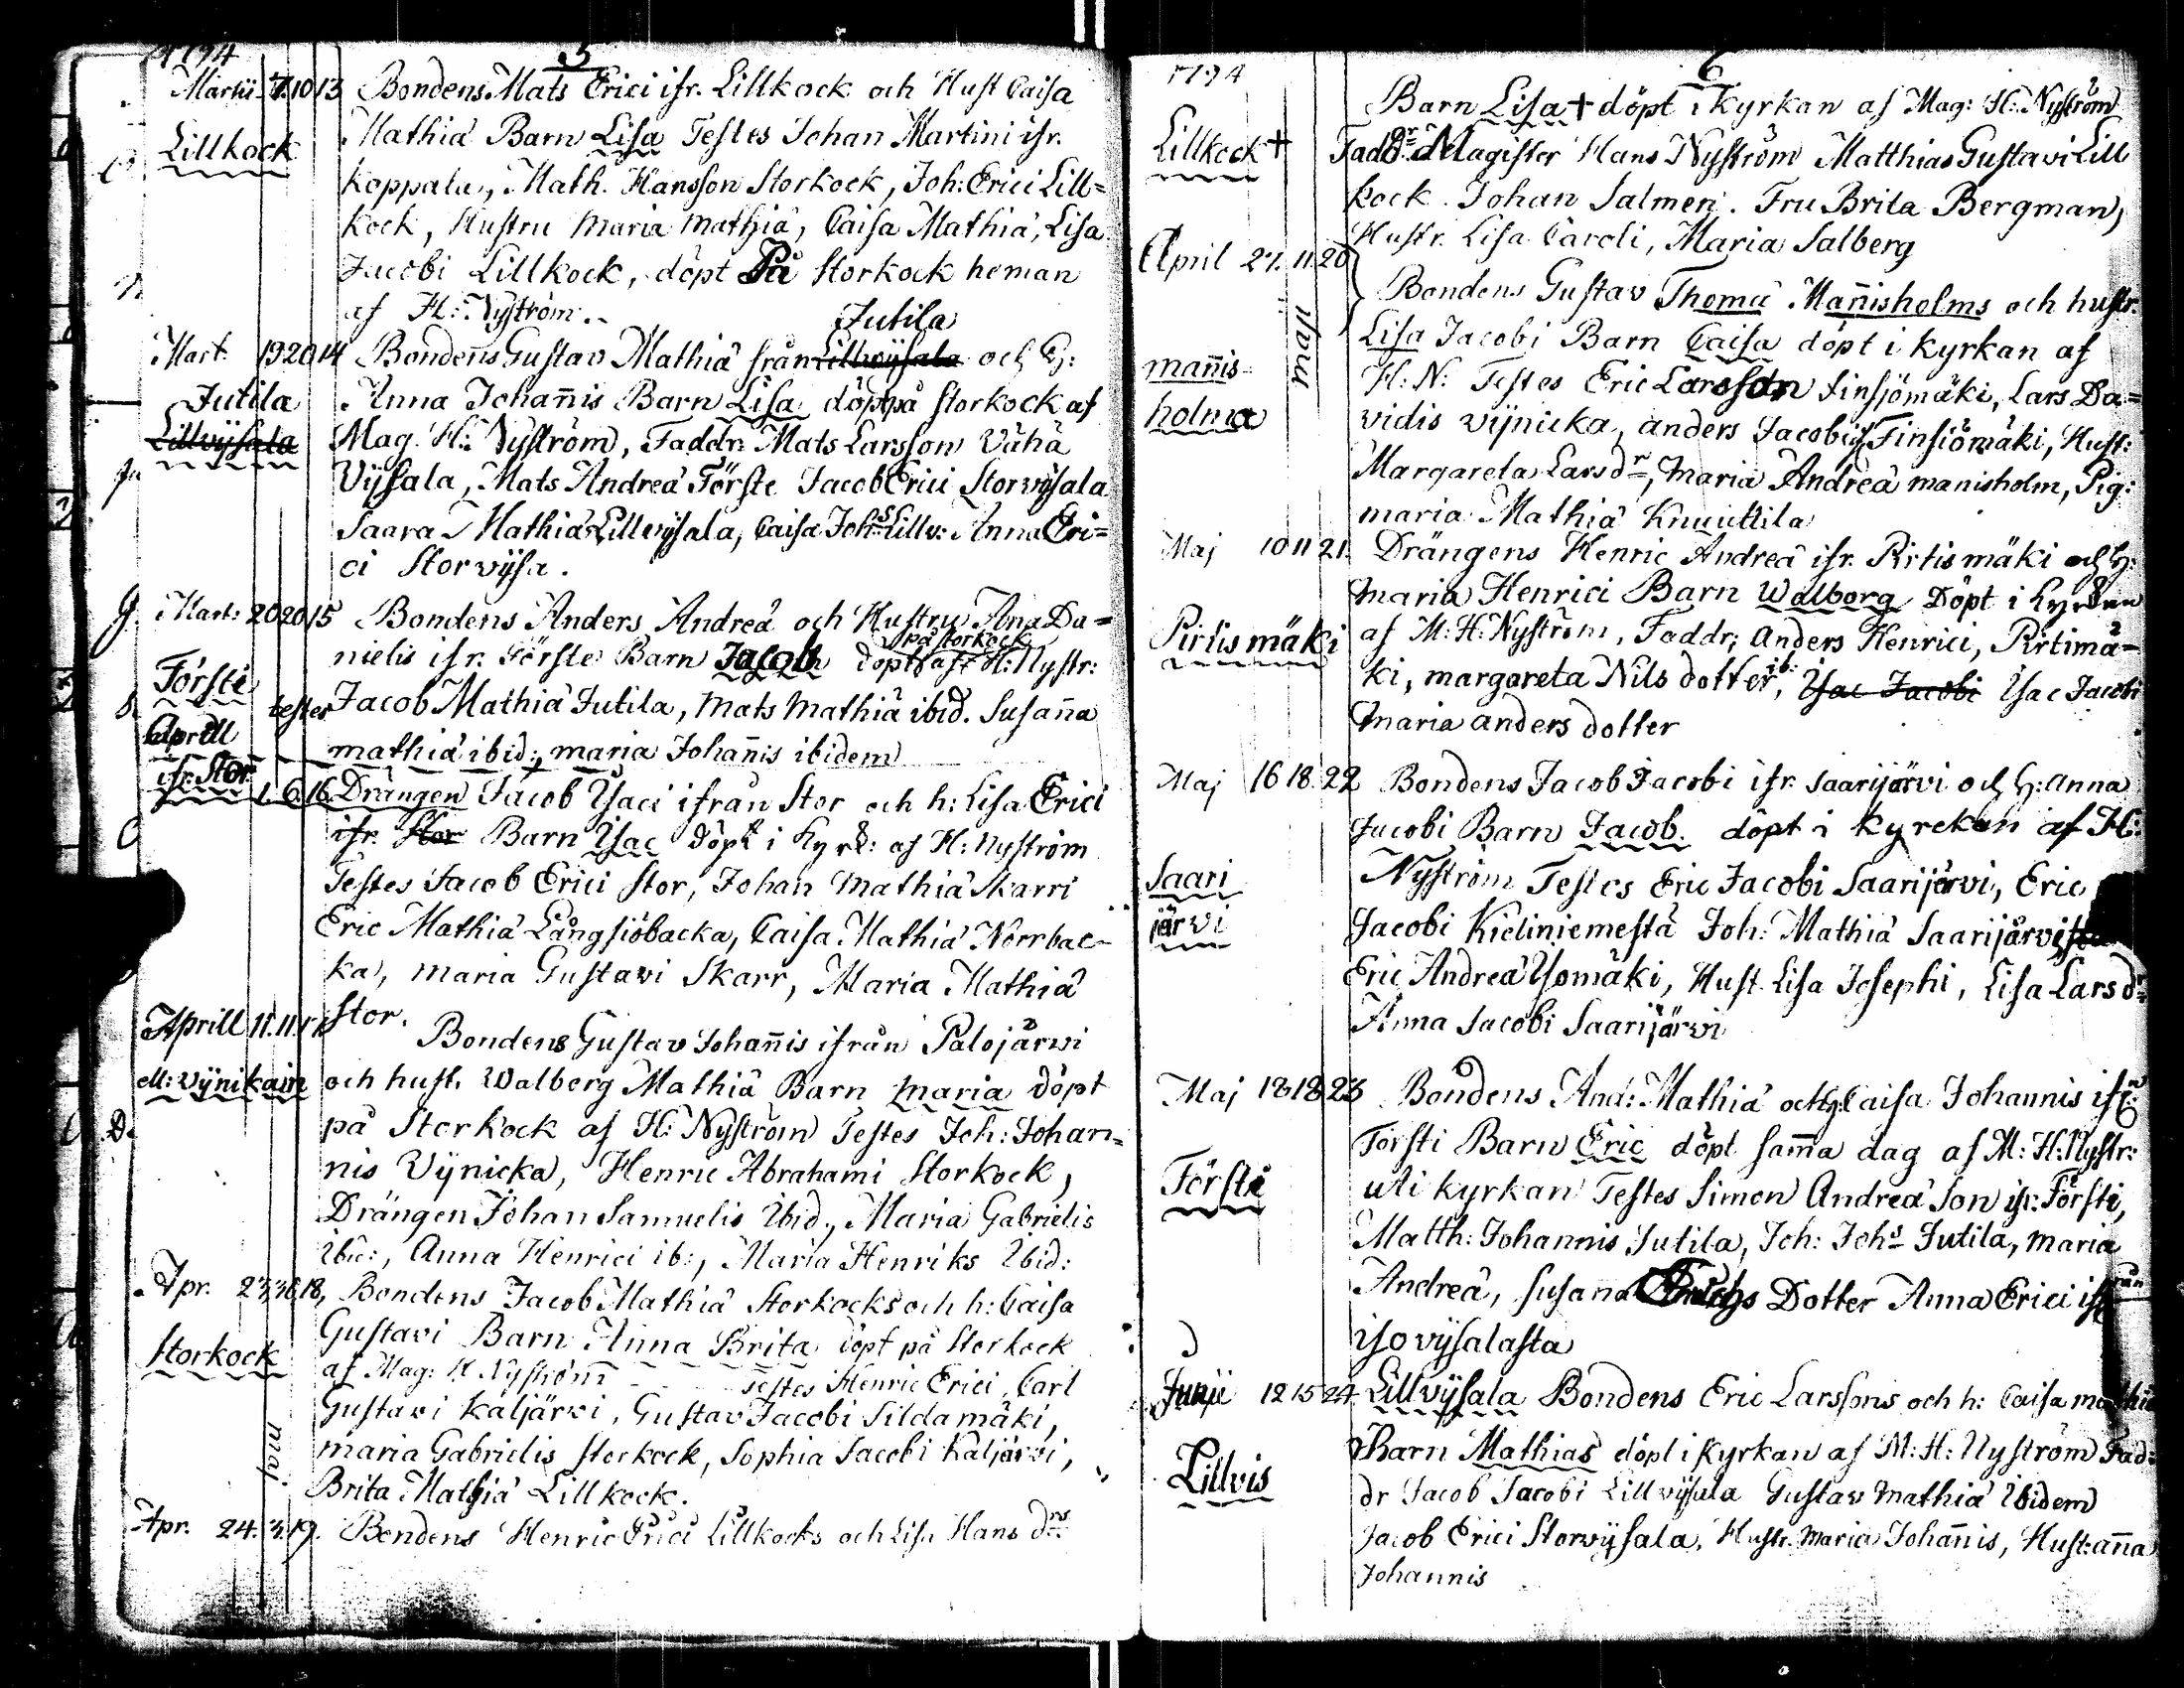 1794
5
Martii 7. 10 13 Bondens Mats Erici ifr. Lillkock och Hust Caisa
Lillkock
Mathiä Barn Lisa Testes Johan Martini ifr.
Koppala, Math. Hansson Storkock, Joh: Erici Lill=
kock, Hustru Maria Mathiä, Caisa Mathiä, Lisa
Jacobi Lillkock, döpt På Storkock heman
af H: Nyström.
Jutila
Mart. 19 20 14 Bondens Gustav Mathiä från Lillvÿsala och H:
Jutila
Lillvÿsala
Anna Johan̄is Barn Lisa döpt på Storkock af
Mag. H: Nyström, Faddr. Mats Larsson Vähä
Vÿsala, Mats Andreä Förste Jacob Erici Storvÿsala
Saara Mathiä Lillvÿsala, Caisa Johs Lillv: Anna Eri=
ci Storvÿsa.
Mart: 20 20 15 Bondens Anders Andreä och Hustru Ana Da=
på storkock
nielis ifr. Förste Barn Jacob döpt af H: Nystr:
Försti
testes Jacob Mathiä Jutila, Mats Mathiä ibid. Susan̄a
mathiä ibid:, maria Johan̄is ibidem
Aprill
ifr. Stor
1 6 16 Drängen Jacob Ysaci ifrån Stor och h: Lisa Erici
ifr. Stor Barn Ysac döpt i Kyrk: af H: Nyström
Testes Jacob Erici Stor, Johan Mathiä Skarri
Eric Mathiä Långsiöbacka, Caisa Mathiä Norrbac-
ka, maria Gustavi Skarr, Maria Mathiä
Stor.
Aprill 11. 11. 17 Bondens Gustav Johan̄is ifrån Palojärvi
M: Vÿnikain
och hust. Walberg Mathiä Barn maria döpt
på Storkock af H: Nyström Testes Joh: Johan=
nis Vÿnicka, Henric Abrahami Storkock,
Drängen Johan Samuelis Ibid., Maria Gabrielis
Ibid:, Anna Henrici ib:, Maria Henriks Ibid:
Apr. 18, Bondens Jacob Mathiä Storkocks och h: Caisa
Gustavi Barn Anna Brita döpt på Storkock
Storkock
af Mag: H Nyström Testes Henric Erici, Carl
Gustavi Kaljärvi, Gustav Jacobi Sildamäki,
maria Gabrielis Storkock, Sophia Jacobi Kaljärvi,
Brita Mathiä Lillkock.
maj
Apr. 24. 3. 19. Bondens Henric Erici Lillkocks och Lisa Hans drs
1794
6
Barn Lisa + döpt i Kyrkan af Mag: H: Nyström
Lillkock +
Faddr Magister Hans Nyström Matthias Gustavi Lill
kock. Johan Salmen. Fru Brita Bergman,
Hustr. Lisa Caroli, Maria Salberg
April 27. 11. 20
maji
Bondens Gustav Thomä Man̄isholms och hustr.
Lisa Jacobi Barn Caisa döpt i kyrkan af
man̄is=
holma
H: N: Testes Eric Larsson Finsjömäki, Lars Da=
vidis Vÿnicka, anders Jacobi Finsiömäki, Hust:
Margareta Lars dr, Maria Andreä manisholm, Pig:
maria Mathiä Knuuttila
Maj 10 11 21. Drängens Henric Andreä ifr. Pirtismäki och H:
maria Henrici Barn Walborg Döpt i Kyrkan
Pirtismäki
af M: H: Nyström, Faddr; anders Henrici, Pirtimä-
ki, margareta Nils dotter, ib: Ysac Jacobi Ysac Jacobi
maria anders dotter
Maj 16 18. 22 Bondens Jacob Jacobi ifr. Saarijärvi och H: Anna
Jacobi Barn Jacob. döpt i kyrckan af H:
Saari
järvi
Nyström Testes Eric Jacobi Saarijärvi, Eric
Jacobi Kieliniemestä Joh: Mathiä Saarijärvi
Eric Andreä Ysomäki, Hust Lisa Josephi, Lisa Lars dr
Anna Jacobi Saarijärvi
Maj 18 18 23 Bondens And: Mathiä och H: Caisa Johannis ifr:
Försti
Försti Barn Eric döpt sam̄a dag af M: H: Nystr:
uti kyrkan Testes Simon Andreä Son ifr: Försti,
Matth: Johannis Jutila, Joh: Johs Jutila, maria
Andreä, Susana Dotter Anna Erici ifrån
iso vÿsalasta
Junii 12 15 24 Lillvÿsala Bondens Eric Larssons och h: Caisa mathiä
Lillvis
Barn Mathias döpt i Kyrkan af M: H: Nyström Fad:
dr Jacob Jacobi Lillvÿsala Gustav Mathiä Ibidem
Jacob Erici Storvÿsala, Hustr. Maria Johan̄is, Hust: an̄a
Johannis